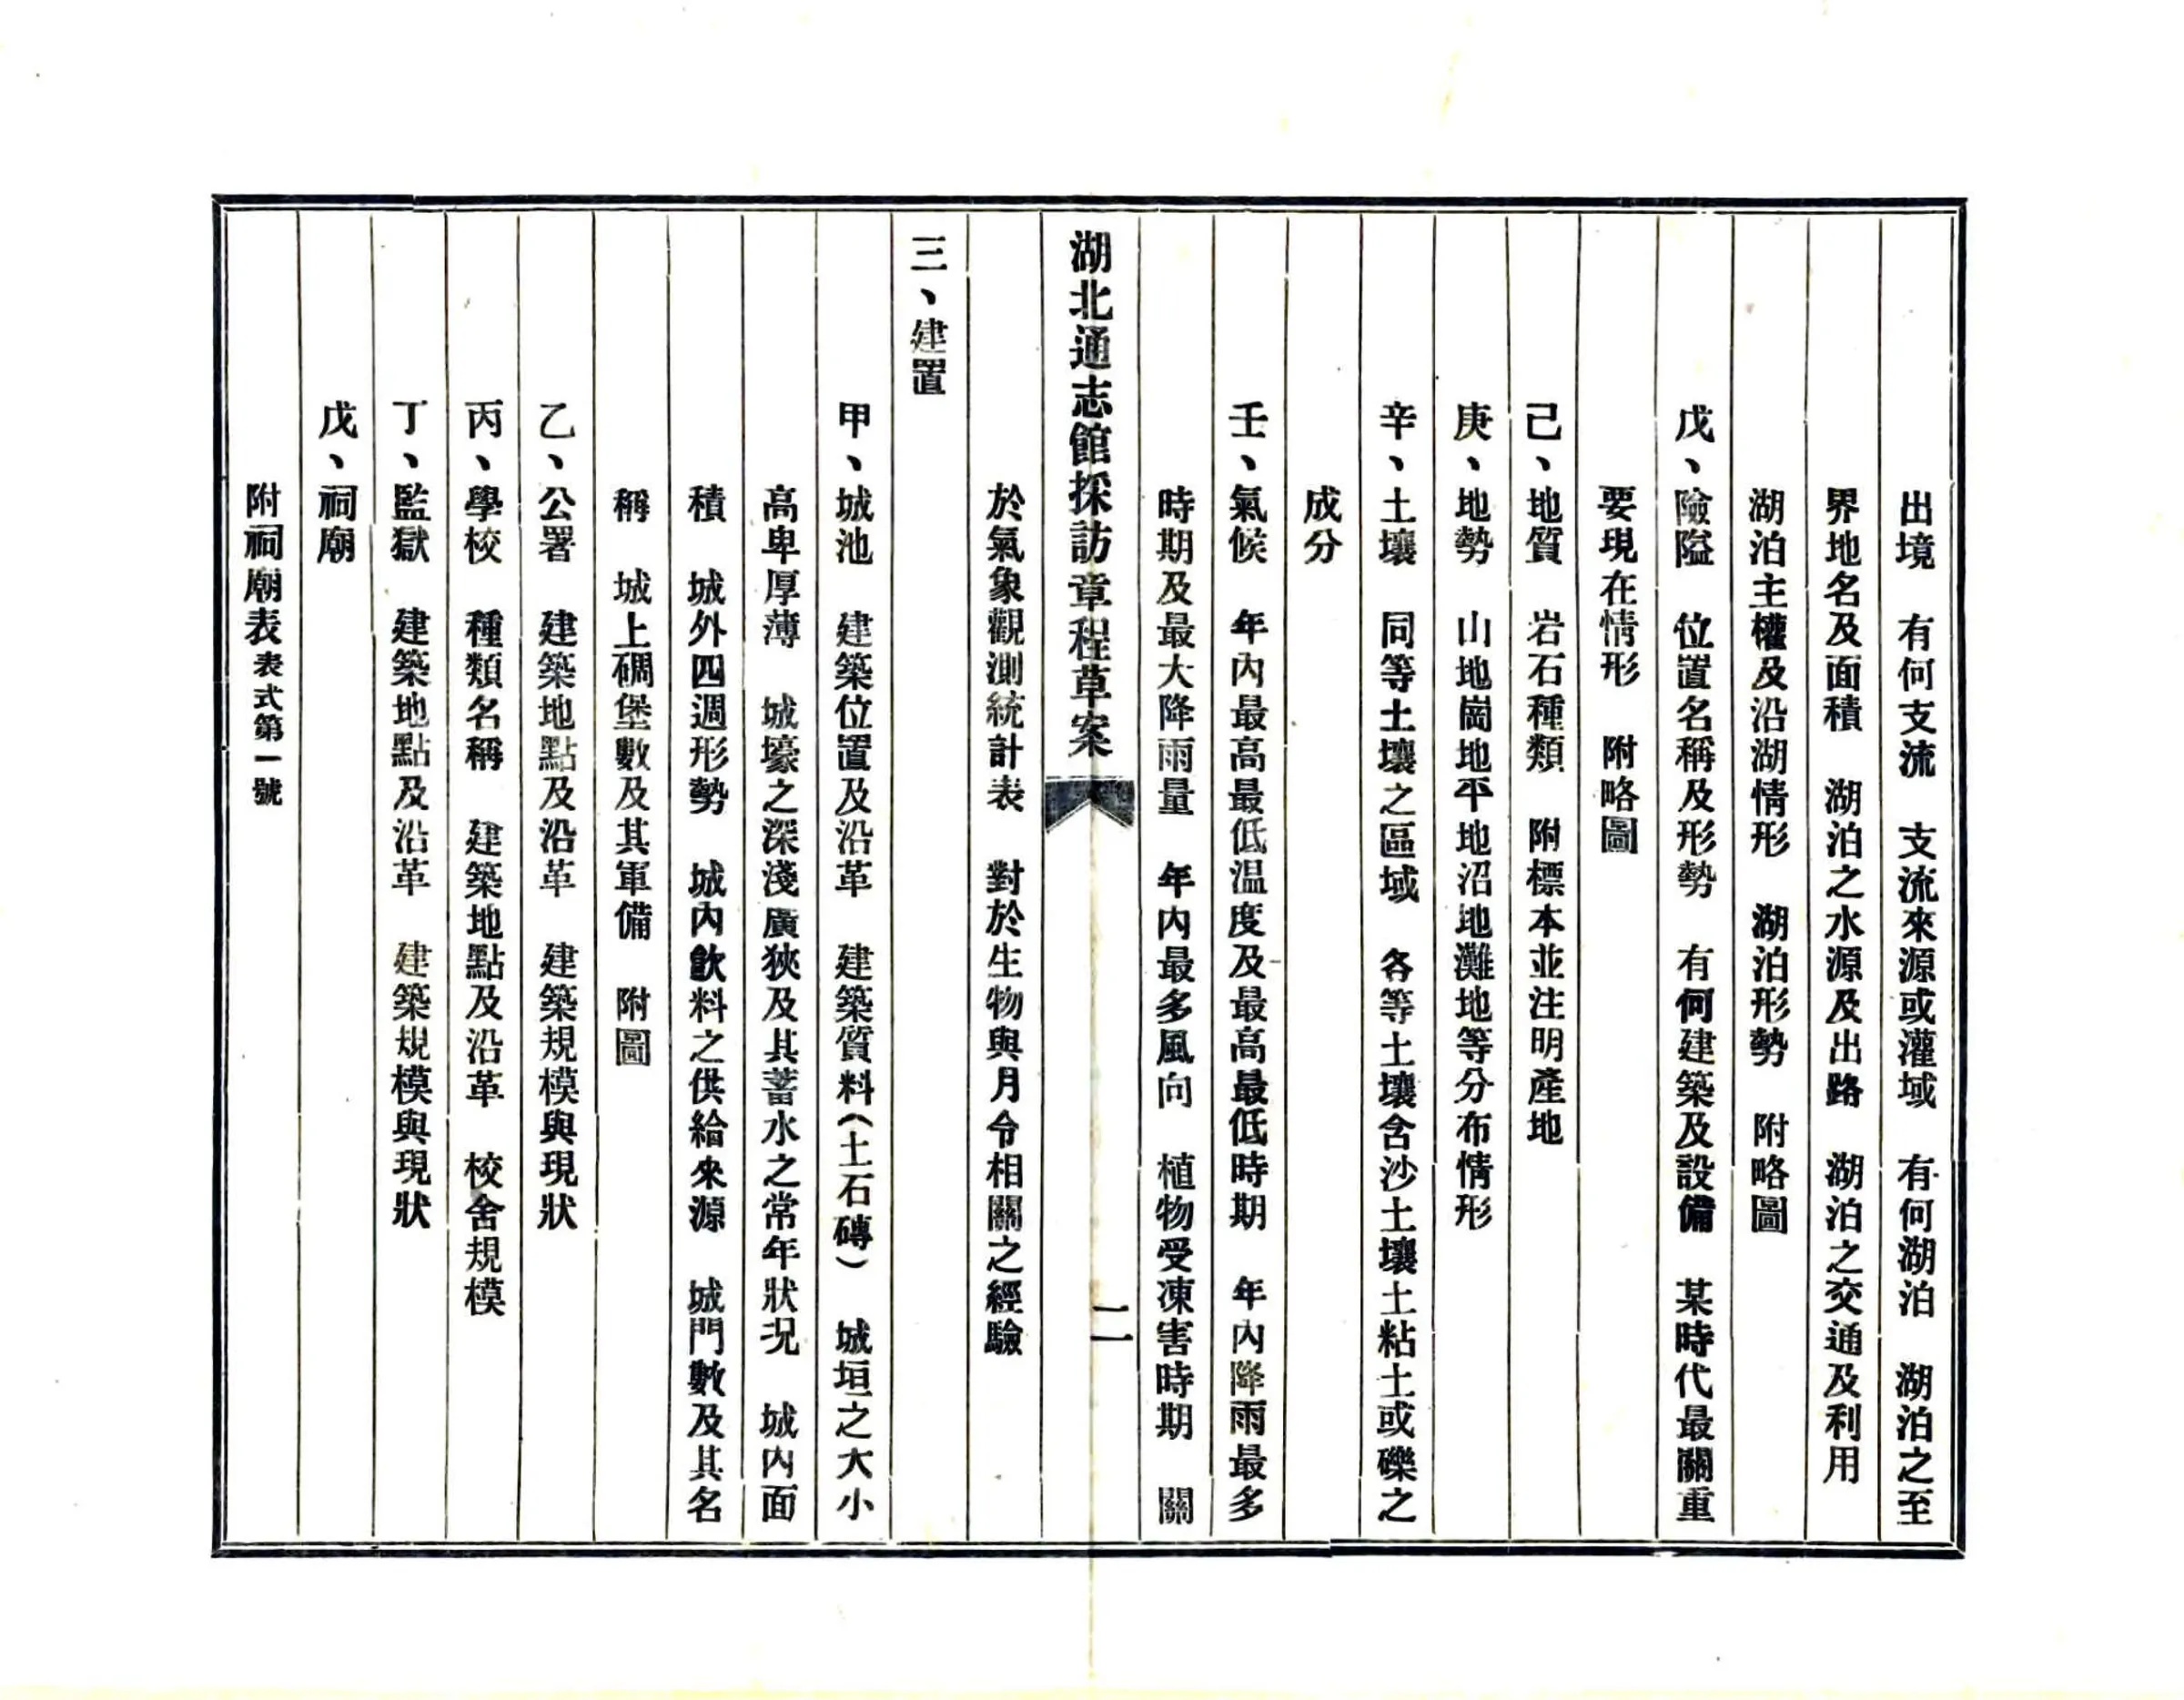 出境　有何支流　支流來源或灌域　有何湖泊　湖泊之至
界地名及面積　湖泊之水源及出路　湖泊之交通及利用
湖泊主權及沿湖情形　湖泊形勢　附略圖
戊、險隘　位置名稱及形勢　有何建築及設備　某時代最關重
要現在情形　附略圖
己、地質　岩石種類　附標本並注明產地
庚、地勢　山地崗地平地沼地灘地等分布情形
辛、土壤　同等土壤之區域　各等土壤含沙土壤土粘土或礫之
成分
壬、氣候　年內最高最低温度及最高最低時期　年內降雨最多
時期及最大降雨量　年內最多風向　植物受凍害時期　關
湖北通志館採訪章程草案
二
於氣象觀測統計表　對於生物與月令相關之經驗
三、建置
甲、城池　建築位置及沿革　建築質料（土石磚）　城垣之大小
高卑厚薄　城壕之深淺廣狹及其蓄水之常年狀況　城內面
積　城外四週形勢　城內飲料之供給來源　城門數及其名
稱　城上碉堡數及其軍備　附圖
乙、公署　建築地點及沿革　建築規模與現狀
丙、學校　種類名稱　建築地點及沿革　校舍規模
丁、監獄　建築地點及沿革　建築規模與現狀
戊、祠廟
附祠廟表表式第一號